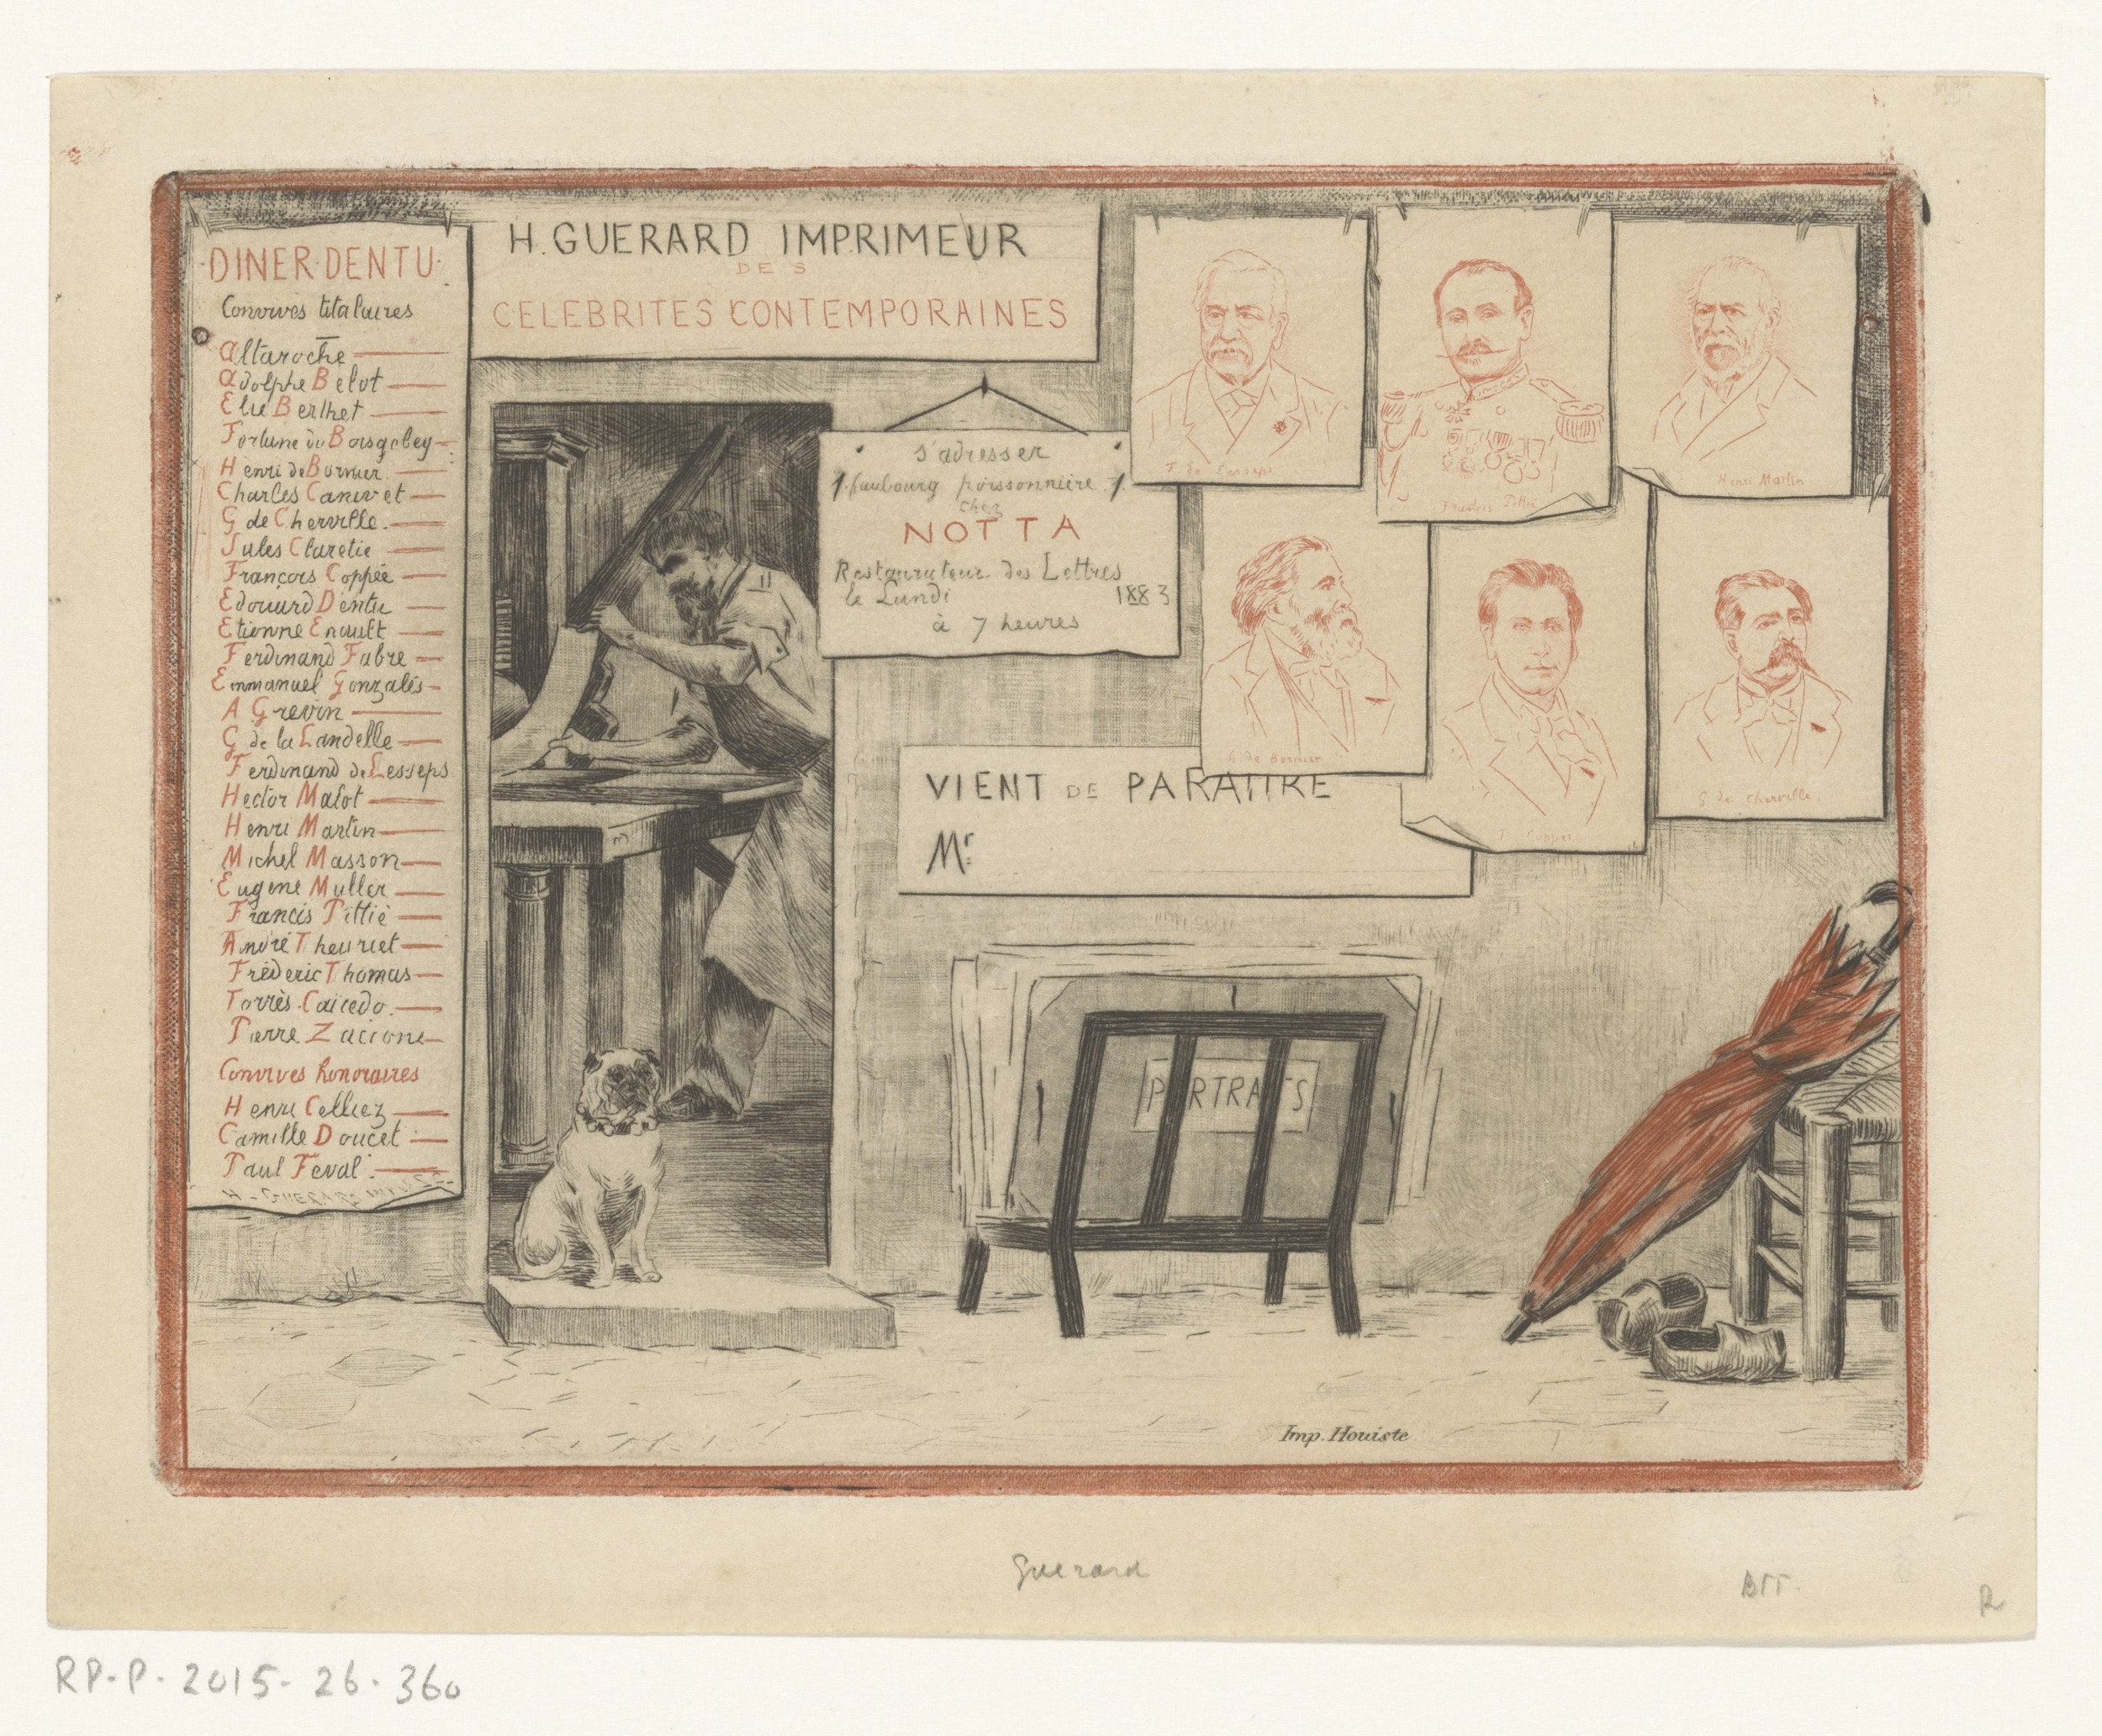 DINER·DENTU·
Convives titulaires
Altaroche
Adolphe Belot
Elie Berthet
Fortune du Boisgobey
Henri de Bornier
Charles Canivet
G de Cherville
Jules Claretie
François Coppée
Edouard Dentu
Etienne Enault
Ferdinand Fabre
Emmanuel Gonzalès
A Grevin
G de la Landelle
Ferdinand de Lesseps
Hector Malot
Henri Martin
Michel Masson
Eugene Muller
Francis Pittié
André Theuriet
Fréderic Thomas
Torrès-Caïcedo
Pierre Zaccone
Convives honoraires
Henri Celliez
Camille Doucet
Paul Feval
H-GUERARD
H. GUERARD IMPRIMEUR
DES
CELEBRITES CONTEMPORAINES
s'adresser
1. faubourg poissonnière. 1.
chez
NOTTA
Restaurateur des Lettres
le Lundi 1883
à 7 heures
F de Lesseps
Francis Pittié
Henri Martin
H de Bornier
F Coppée
G de Cherville
VIENT DE PARAITRE
Mr
PORTRAITS
Imp. Houiste
Guerard
R
RP-P-2015-26-360